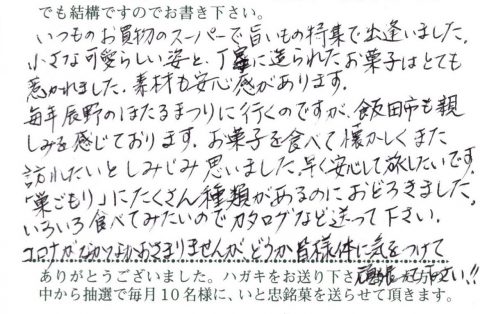 でも結構ですのでお書き下さい。
いつものお買物のスーパーで旨いもの特集で出逢いました。
小さな可愛らしい姿と、丁寧に造られたお菓子はとても
惹かれました。素材も安心感があります。
毎年辰野のほたるまつりに行くのですが、飯田市も親
しみを感じております。お菓子を食べて懐かしくまた
訪れたいとしみじみ思いました。早く安心して旅したいです。
「巣ごもり」にたくさん種類があるのにおどろきました。
いろいろ食べてみたいのでカタログなど送って下さい。
コロナがなかなかおさまりませんが、どうか皆様体に気をつけて
頑張って下さい!!
ありがとうございました。ハガキをお送り下さ
方の
中から抽選で毎月10名様に、いと忠銘菓を送らせて頂きます。